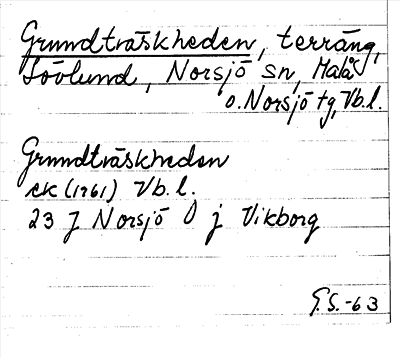 Grundträskheden, terräng,
Lövlund, Norsjö sn, Malå
o. Norsjö tg, Vb.l.
Grundträskheden
ek (1961) Vb.l.
23 J Norsjö O j Vikborg
G.S. -63